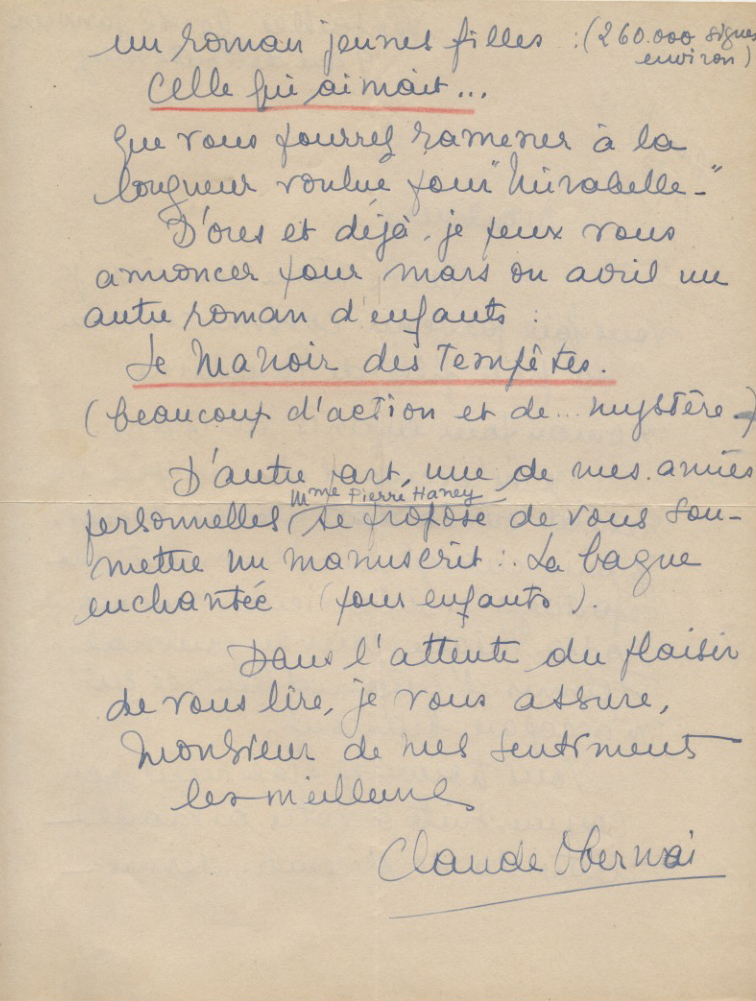 un roman jeunes filles : (260.000 signes
environ)
Celle qui aimait...
Que vous pourrez ramener à la
longueur voulue pour "Mirabelle-"
D'ores et déjà, je peux vous
annoncer pour mars ou avril un
autre roman d'enfants :
Le Manoir des Tempêtes.
(beaucoup d'action et de... mystère-)
D'autre part, une de mes amies
Mme Pierre Haney
personnelles se propose de vous sou-
mettre un manuscrit : La bague
enchantée (pour enfants).
Dans l'attente du plaisir
de vous lire, je vous assure,
Monsieur de mes sentiments
les meilleurs
Claude Obernai